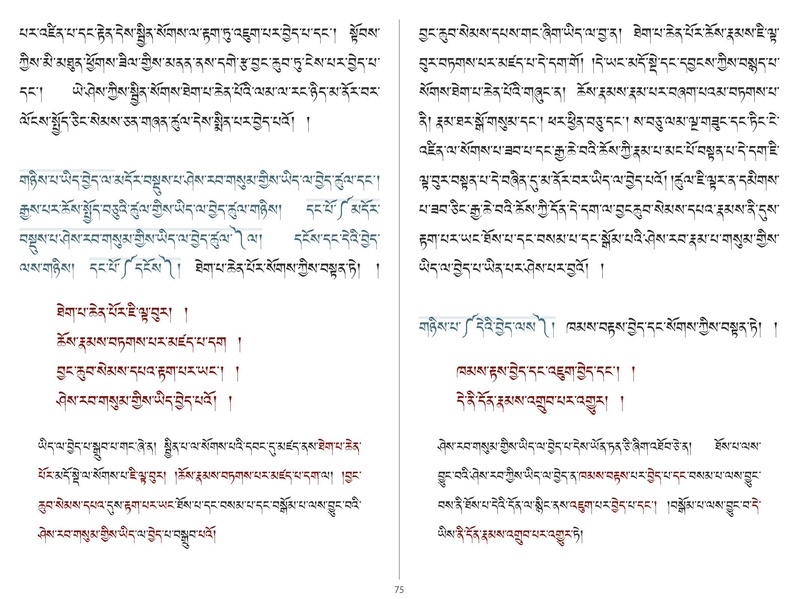 པར་འཛིན་པ་དང་རྟེན་དེས་སྦྱིན་སོགས་ལ་རྟག་ཏུ་འཇུག་པར་བྱེད་པ་དང་། སྟོབས་
ཀྱིས་མི་མཐུན་ཕྱོགས་ཟིལ་གྱིས་མནན་ནས་དགེ་རྩ་བྱང་ཆུབ་ཏུ་ངེས་པར་བྱེད་པ་
དང་། ཡེ་ཤེས་ཀྱིས་སྦྱིན་སོགས་ཐེག་པ་ཆེན་པོའི་ལམ་ལ་རང་ཉིད་མ་ནོར་བར་
ལོངས་སྤྱོད་ཅིང་སེམས་ཅན་གཞན་ཚུལ་དེས་སྨིན་པར་བྱེད་པའོ། །
གཉིས་པ་ཡིད་བྱེད་ལ་མདོར་བསྡུས་པ་ཤེས་རབ་གསུམ་གྱིས་ཡིད་ལ་བྱེད་ཚུལ་དང་།
རྒྱས་པར་ཆོས་སྤྱོད་བཅུའི་ཚུལ་གྱིས་ཡིད་ལ་བྱེད་ཚུལ་གཉིས། དང་པོ་༼མདོར་
བསྡུས་པ་ཤེས་རབ་གསུམ་གྱིས་ཡིད་ལ་བྱེད་ཚུལ་༽ལ། དངོས་དང་དེའི་བྱེད་
ལས་གཉིས། དང་པོ་༼དངོས་༽། ཐེག་པ་ཆེན་པོར་སོགས་ཀྱིས་བསྟན་ཏེ། །
ཐེག་པ་ཆེན་པོར་ཇི་ལྟ་བུར། །
ཆོས་རྣམས་བཏགས་པར་མཛད་པ་དག །
བྱང་ཆུབ་སེམས་དཔའ་རྟག་པར་ཡང་། །
ཤེས་རབ་གསུམ་གྱིས་ཡིད་བྱེད་པའོ། །
ཡིད་ལ་བྱེད་པ་སྒྲུབ་པ་གང་ཞེ་ན། སྦྱིན་པ་ལ་སོགས་པའི་དབང་དུ་མཛད་ནས་ཐེག་པ་ཆེན་
པོར་མདོ་སྡེ་ལ་སོགས་པ་ཇི་ལྟ་བུར། །ཆོས་རྣམས་བཏགས་པར་མཛད་པ་དག་ལ། །བྱང་
ཆུབ་སེམས་དཔའ་དུས་རྟག་པར་ཡང་ཐོས་པ་དང་བསམ་པ་དང་བསྒོམ་པ་ལས་བྱུང་བའི་
ཤེས་རབ་གསུམ་གྱིས་ཡིད་ལ་བྱེད་པ་བསྒྲུབ་པའོ།
བྱང་ཆུབ་སེམས་དཔས་གང་ཞིག་ཡིད་ལ་བྱ་ན། ཐེག་པ་ཆེན་པོར་ཆོས་རྣམས་ཇི་ལྟ་
བུར་བཏགས་པར་མཛད་པ་དེ་དག་གོ། །དེ་ཡང་མདོ་སྡེ་དང་དབྱངས་ཀྱིས་བསྙད་པ་
སོགས་ཐེག་པ་ཆེན་པོའི་གཞུང་ན། ཆོས་རྣམས་རྣམ་པར་བཞག་པའམ་བཏགས་པ་
ནི། རྣམ་ཐར་སྒོ་གསུམ་དང་། ཕར་ཕྱིན་བཅུ་དང་། ས་བཅུ་ལམ་ལྔ་གཟུང་དང་ཏིང་ངེ་
འཛིན་ལ་སོགས་པ་ཟབ་པ་དང་རྒྱ་ཆེ་བའི་ཆོས་ཀྱི་རྣམ་པ་མང་པོ་བསྟན་པ་དེ་དག་ཇི་
ལྟ་བུར་བསྟན་པ་དེ་བཞིན་དུ་མ་ནོར་བར་ཡིད་ལ་བྱེད་པའོ། །ཚུལ་ཇི་ལྟར་ན་དམིགས་
པ་ཟབ་ཅིང་རྒྱ་ཆེ་བའི་ཆོས་ཀྱི་དོན་དེ་དག་ལ་བྱང་ཆུབ་སེམས་དཔའ་རྣམས་ནི་དུས་
རྟག་པར་ཡང་ཐོས་པ་དང་བསམ་པ་དང་སྒོམ་པའི་ཤེས་རབ་རྣམ་པ་གསུམ་གྱིས་
ཡིད་ལ་བྱེད་པ་ཡིན་པར་ཤེས་པར་བྱའོ། །
གཉིས་པ་༼དེའི་བྱེད་ལས་༽། ཁམས་བརྟས་བྱེད་དང་སོགས་ཀྱིས་བསྟན་ཏེ། །
ཁམས་རྟས་བྱེད་དང་འཇུག་བྱེད་དང་། །
དེ་ནི་དོན་རྣམས་འགྲུབ་པར་འགྱུར། །
ཤེས་རབ་གསུམ་གྱིས་ཡིད་ལ་བྱེད་པ་དེས་ཡོན་ཏན་ཅི་ཞིག་འཐོབ་ཅེ་ན། ཐོས་པ་ལས་
བྱུང་བའི་ཤེས་རབ་ཀྱིས་ཡིད་ལ་བྱེད་ན་ཁམས་བརྟས་པར་བྱེད་པ་དང་བསམ་པ་ལས་བྱུང་
བས་ནི་ཐོས་པ་དེའི་དོན་ལ་སྙིང་ནས་འཇུག་པར་བྱེད་པ་དང་། །བསྒོམ་པ་ལས་བྱུང་བ་དེ་
ཡིས་ནི་དོན་རྣམས་འགྲུབ་པར་འགྱུར་ཏེ།
75